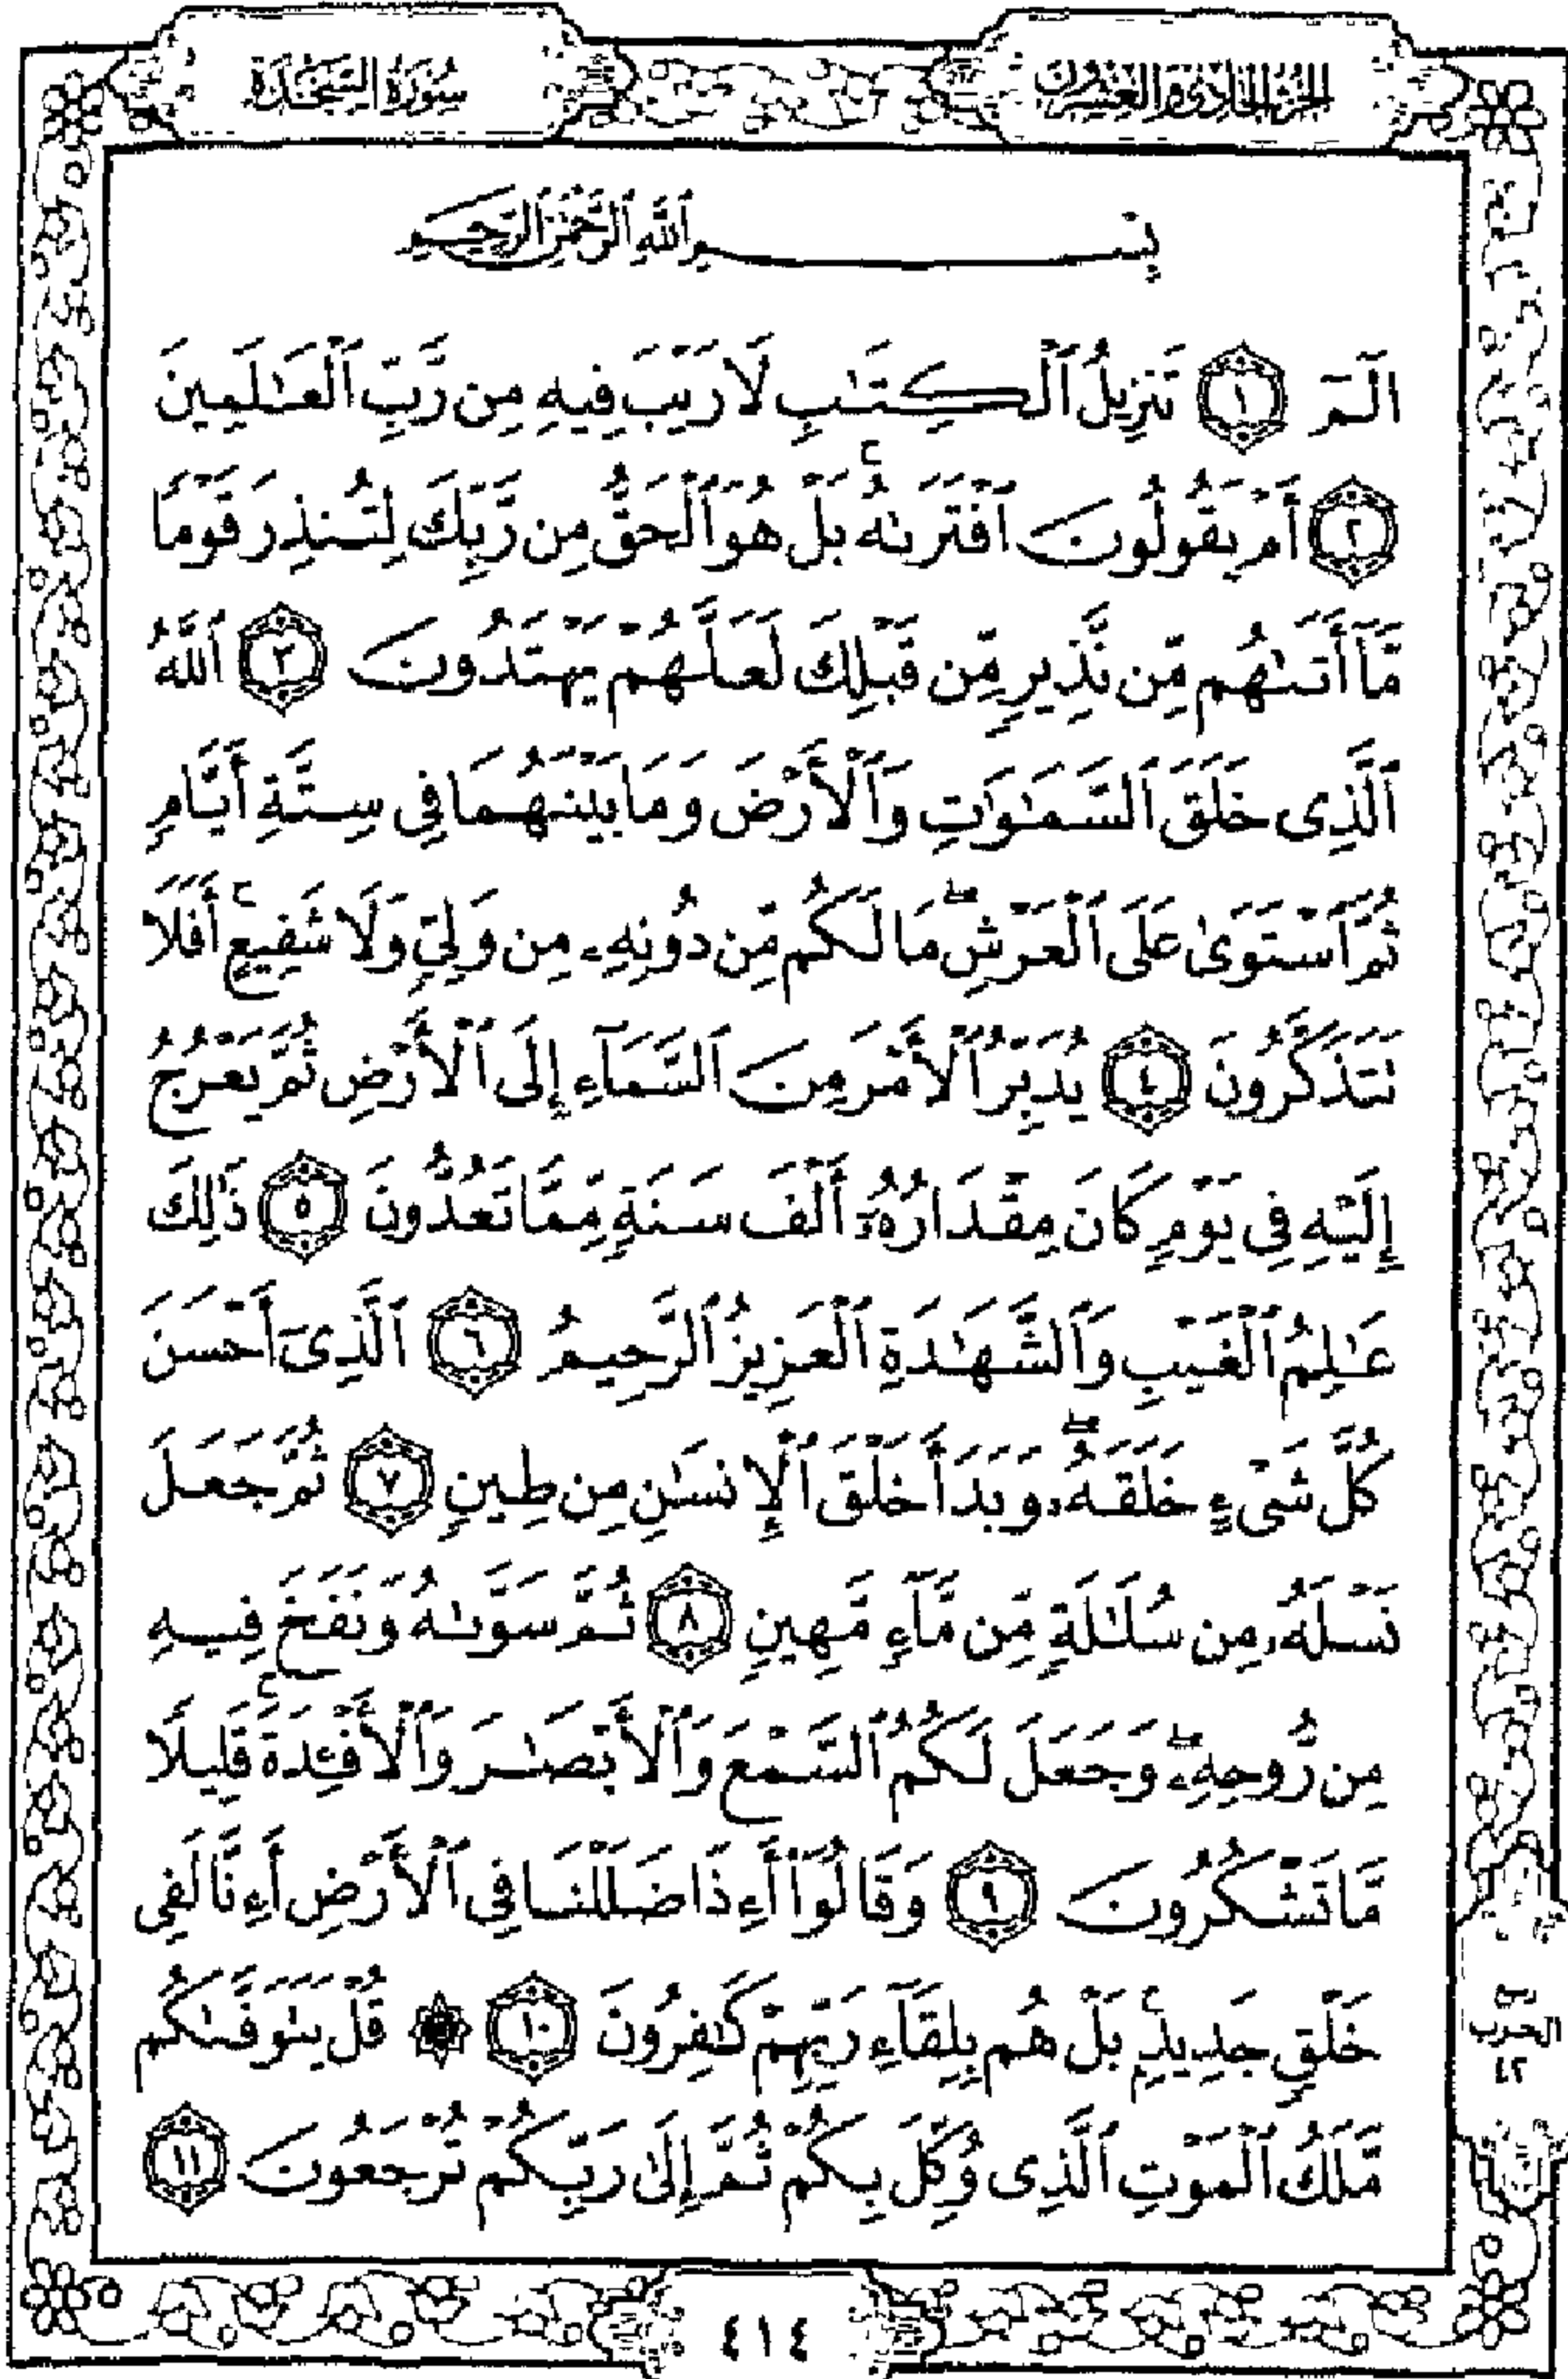 الجزء الحادي والعشرون
سُورَةُ السَّجْدَةِ
بِسْمِ ٱللَّهِ ٱلرَّحْمَٰنِ ٱلرَّحِيمِ
الٓمٓ ١ تَنزِيلُ ٱلْكِتَٰبِ لَا رَيْبَ فِيهِ مِن رَّبِّ ٱلْعَٰلَمِينَ
٢ أَمْ يَقُولُونَ ٱفْتَرَىٰهُ ۚ بَلْ هُوَ ٱلْحَقُّ مِن رَّبِّكَ لِتُنذِرَ قَوْمًا
مَّآ أَتَىٰهُم مِّن نَّذِيرٍ مِّن قَبْلِكَ لَعَلَّهُمْ يَهْتَدُونَ ٣ ٱللَّهُ
ٱلَّذِى خَلَقَ ٱلسَّمَٰوَٰتِ وَٱلْأَرْضَ وَمَا بَيْنَهُمَا فِى سِتَّةِ أَيَّامٍ
ثُمَّ ٱسْتَوَىٰ عَلَى ٱلْعَرْشِ ۖ مَا لَكُم مِّن دُونِهِۦ مِن وَلِىٍّ وَلَا شَفِيعٍ ۚ أَفَلَا
تَتَذَكَّرُونَ ٤ يُدَبِّرُ ٱلْأَمْرَ مِنَ ٱلسَّمَآءِ إِلَى ٱلْأَرْضِ ثُمَّ يَعْرُجُ
إِلَيْهِ فِى يَوْمٍ كَانَ مِقْدَارُهُۥٓ أَلْفَ سَنَةٍ مِّمَّا تَعُدُّونَ ٥ ذَٰلِكَ
عَٰلِمُ ٱلْغَيْبِ وَٱلشَّهَٰدَةِ ٱلْعَزِيزُ ٱلرَّحِيمُ ٦ ٱلَّذِىٓ أَحْسَنَ
كُلَّ شَىْءٍ خَلَقَهُۥ ۖ وَبَدَأَ خَلْقَ ٱلْإِنسَٰنِ مِن طِينٍ ٧ ثُمَّ جَعَلَ
نَسْلَهُۥ مِن سُلَٰلَةٍ مِّن مَّآءٍ مَّهِينٍ ٨ ثُمَّ سَوَّىٰهُ وَنَفَخَ فِيهِ
مِن رُّوحِهِۦ ۖ وَجَعَلَ لَكُمُ ٱلسَّمْعَ وَٱلْأَبْصَٰرَ وَٱلْأَفْـِٔدَةَ ۚ قَلِيلًا
مَّا تَشْكُرُونَ ٩ وَقَالُوٓا۟ أَءِذَا ضَلَلْنَا فِى ٱلْأَرْضِ أَءِنَّا لَفِى
خَلْقٍ جَدِيدٍۭ ۚ بَلْ هُم بِلِقَآءِ رَبِّهِمْ كَٰفِرُونَ ١٠ ۞ قُلْ يَتَوَفَّىٰكُم
مَّلَكُ ٱلْمَوْتِ ٱلَّذِى وُكِّلَ بِكُمْ ثُمَّ إِلَىٰ رَبِّكُمْ تُرْجَعُونَ ١١
الحزب
٤٢
٤١٤